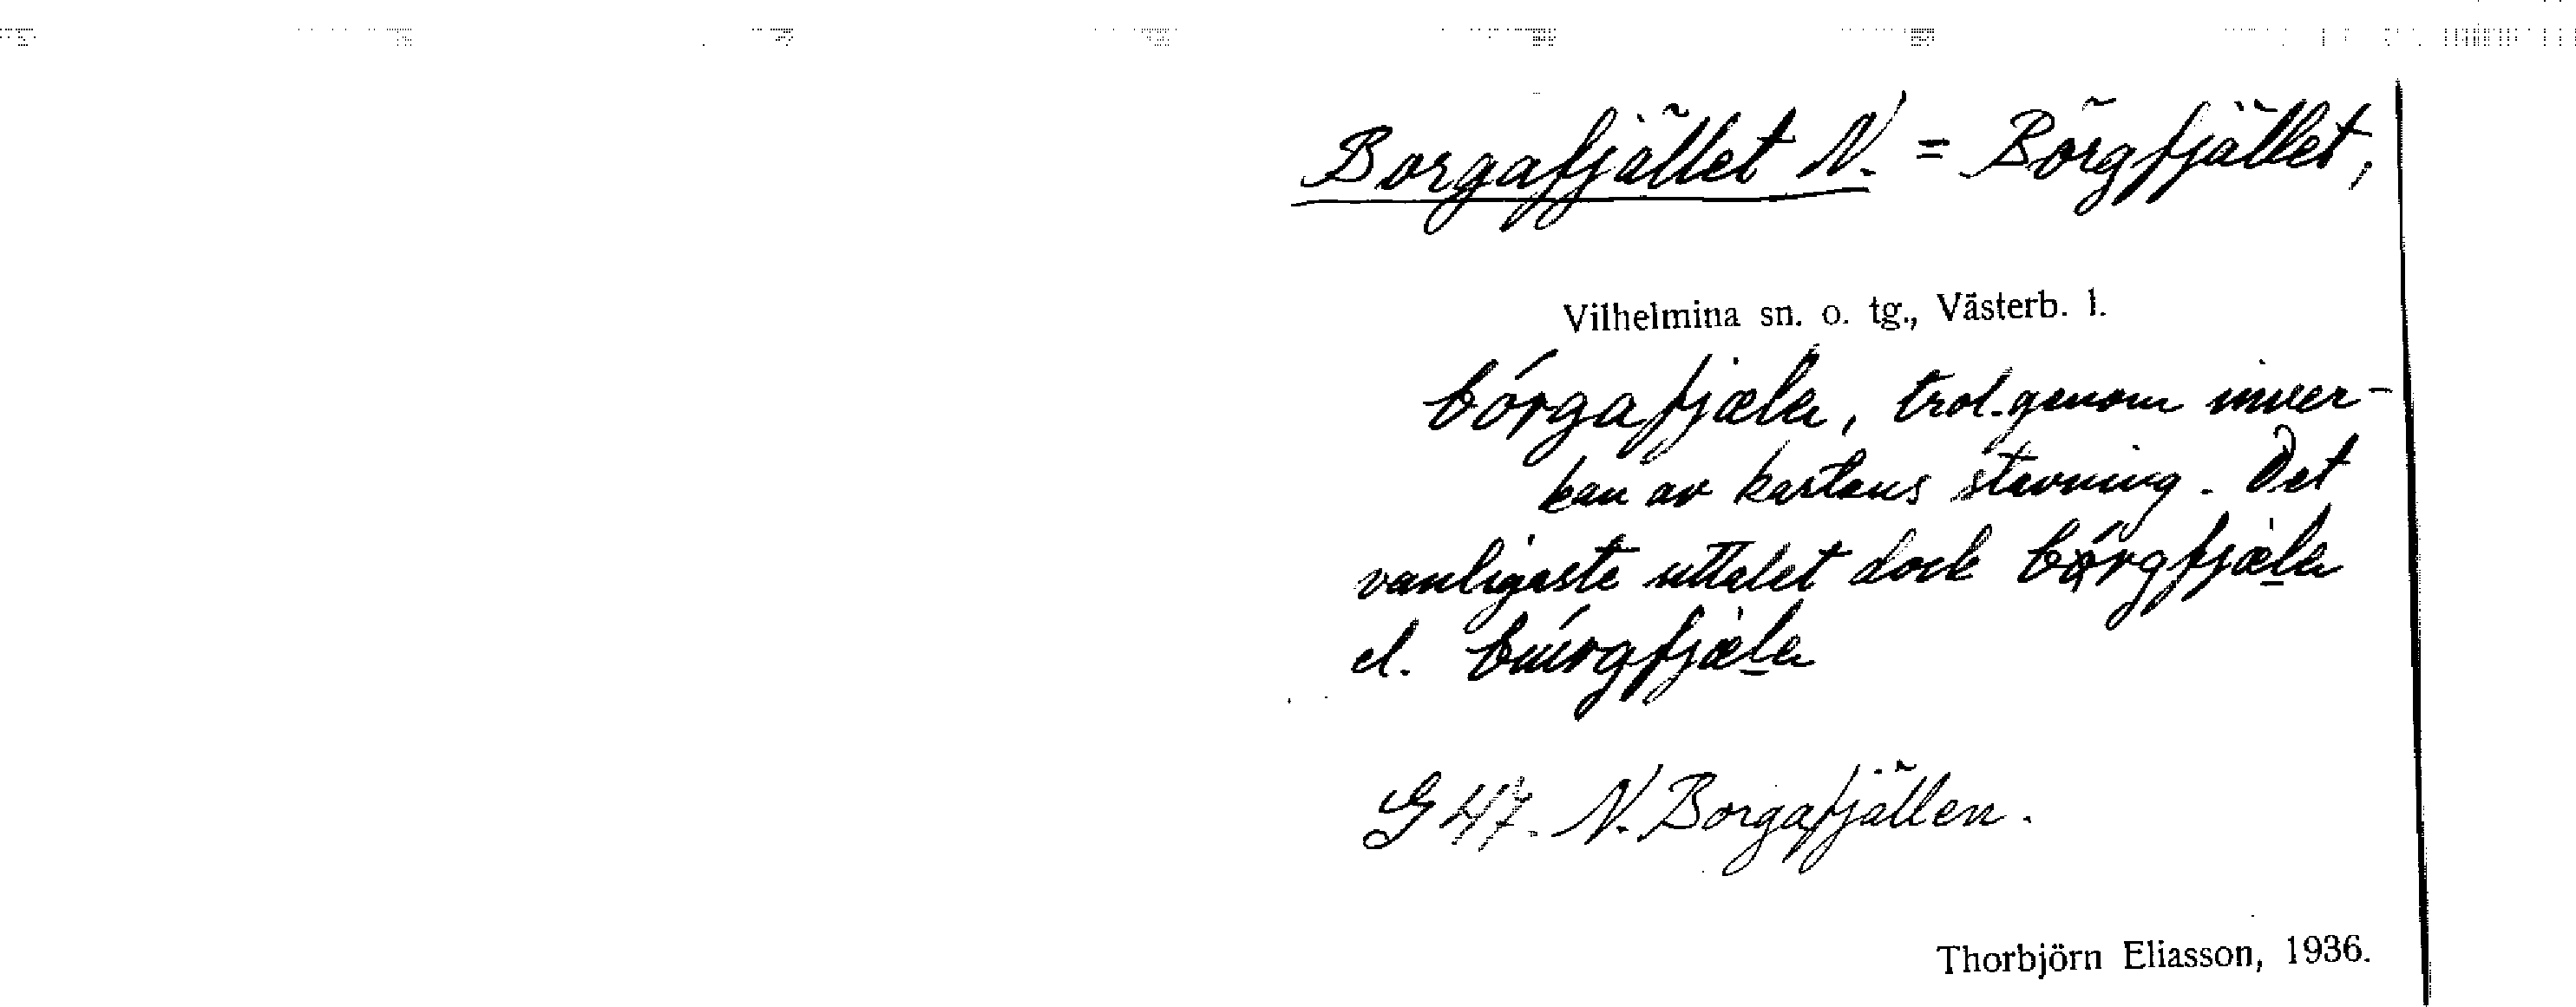 Borgafjället N. = Börgfjället,
Vilhelmina sn. o. tg., Västerb. l.
bórgafjæla, trol. genom inver-
kan av kartans stavning. Det
vanligaste uttalet dock
el.
G 47. N. Borgafjällen.
Thorbjörn Eliasson, 1936.